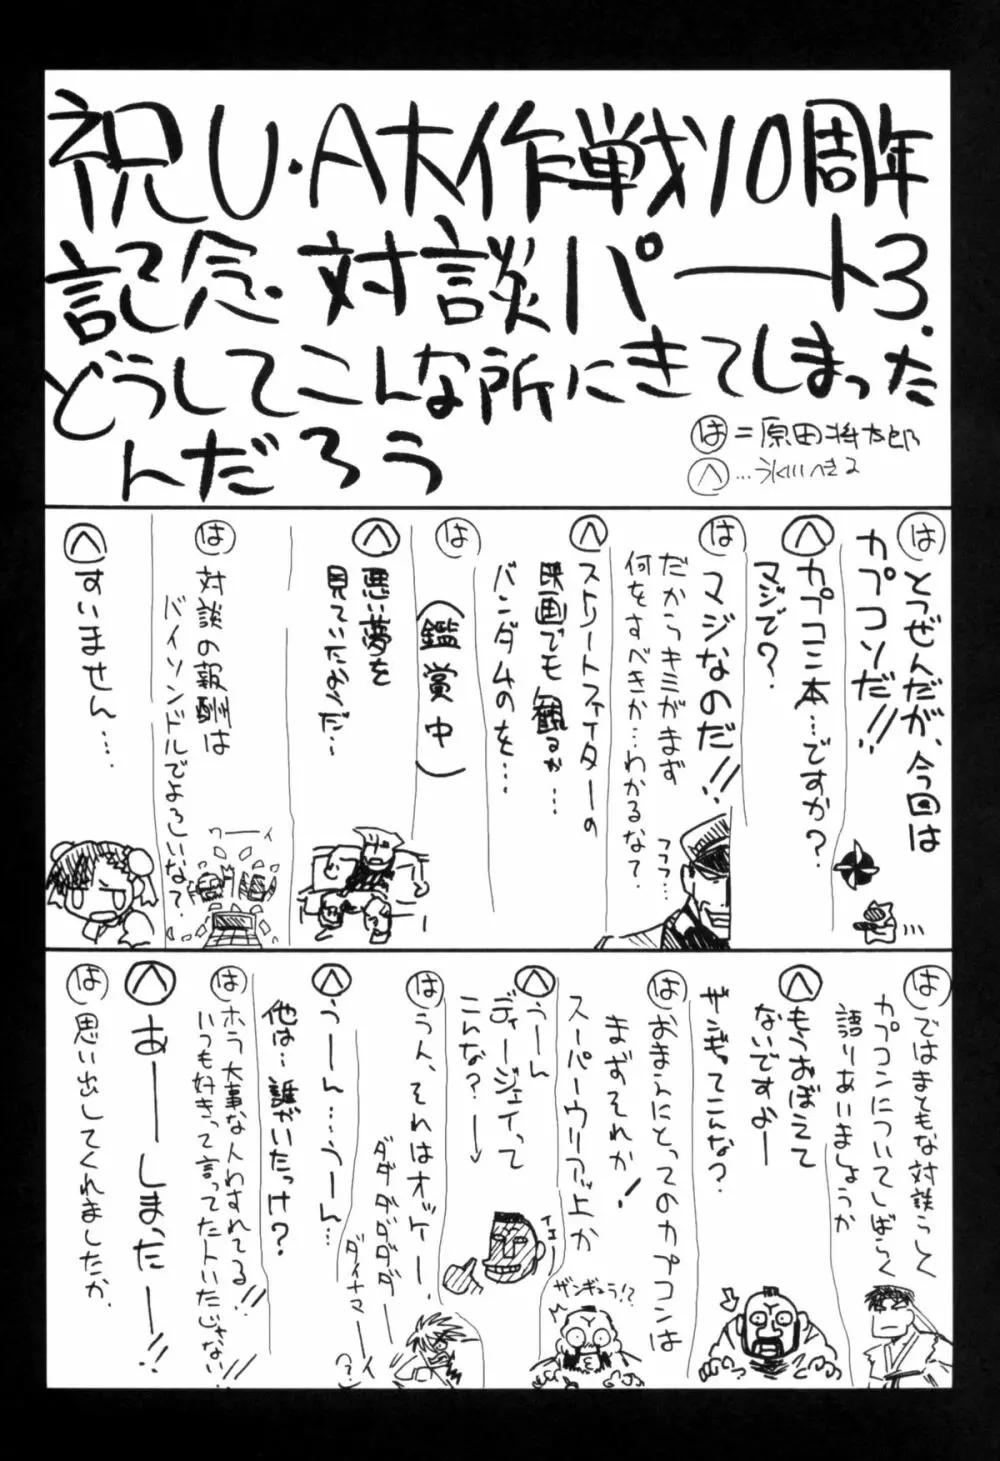 祝U・A大作戦10周年
記念・対談パート3.
どうしてこんな所にきてしまった
んだろう
は=原田将太郎
は とつぜんだが、今回は
カプコンだ!!
へ カプコン本…ですか?
マジで?
は マジなのだ!!
だからキミがまず
何をすべきか…わかるなて.
フフフ…
へ ストリートファイターの
映画でも観るか…
バンダムのを…
は
(鑑賞中)
へ 悪い夢を
見ていたようだ…
は 対談の報酬は
バイソンドルでよろしいなて.
ワーイ
へ すいません…
は ではまともな対談らしく
カプコンについてしばらく
語りあいましょうか
へ もうおぼえて
ないですよー
ザンギってこんな?
は おまえにとってのカプコンは
まずそれか!
スーパーウリアッ上か
ザンギュラ!?
へ うーん
ディージェイって
こんな?→
イエー
は うん、それはオッケー.
ダダダダダダー
ダイナマーイ
へ うーん…うーん…
他は…誰がいたっけ?
は ホラ大事な人わすれてる!!
いつも好きって言ってた人いたじゃない!!
へ あーしまったー!!
は 思い出してくれましたか.